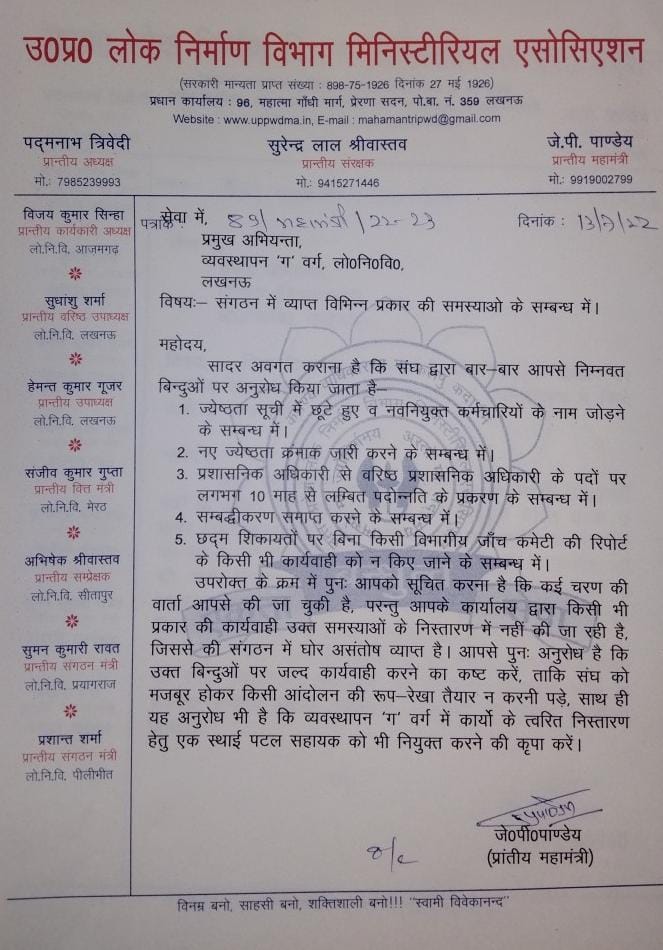 उ0प्र0 लोक निर्माण विभाग मिनिस्टीरियल एसोसिएशन
(सरकारी मान्यता प्राप्त संख्या : 898-75-1926 दिनांक 27 मई 1926)
प्रधान कार्यालय : 96, महात्मा गाँधी मार्ग, प्रेरणा सदन, पो.बा. नं. 359 लखनऊ
Website : www.uppwdma.in, E-mail : mahamantripwd@gmail.com
पद्मनाभ त्रिवेदी
प्रान्तीय अध्यक्ष
मो.: 7985239993
सुरेन्द्र लाल श्रीवास्तव
प्रान्तीय संरक्षक
मो.: 9415271446
जे.पी. पाण्डेय
प्रान्तीय महामंत्री
मो.: 9919002799
विजय कुमार सिन्हा
प्रान्तीय कार्यकारी अध्यक्ष
लो.नि.वि. आजमगढ़
सुधांशु शर्मा
प्रान्तीय वरिष्ठ उपाध्यक्ष
लो.नि.वि. लखनऊ
हेमन्त कुमार गूजर
प्रान्तीय उपाध्यक्ष
लो.नि.वि. लखनऊ
संजीव कुमार गुप्ता
प्रान्तीय वित्त मंत्री
लो.नि.वि. मेरठ
अभिषेक श्रीवास्तव
प्रान्तीय सम्प्रेक्षक
लो.नि.वि. सीतापुर
सुमन कुमारी रावत
प्रान्तीय संगठन मंत्री
लो.नि.वि. प्रयागराज
प्रशान्त शर्मा
प्रान्तीय संगठन मंत्री
लो.नि.वि. पीलीभीत
पत्रांक सेवा में, 89/महामंत्री/22-23 दिनांक : 13/7/22
प्रमुख अभियन्ता,
व्यवस्थापन 'ग' वर्ग, लो0नि0वि0,
लखनऊ
विषयः– संगठन में व्याप्त विभिन्न प्रकार की समस्याओ के सम्बन्ध में।
महोदय,
सादर अवगत कराना है कि संघ द्वारा बार–बार आपसे निम्नवत
बिन्दुओं पर अनुरोध किया जाता है–
1. ज्येष्ठता सूची में छूटे हुए व नवनियुक्त कर्मचारियों के नाम जोड़ने
के सम्बन्ध में।
2. नए ज्येष्ठता क्रंमाक जारी करने के सम्बन्ध में।
3. प्रशासनिक अधिकारी से वरिष्ठ प्रशासनिक अधिकारी के पदों पर
लगभग 10 माह से लम्बित पदोन्नति के प्रकरण के सम्बन्ध में।
4. सम्बद्धीकरण समाप्त करने के सम्बन्ध में।
5. छद्म शिकायतों पर बिना किसी विभागीय जाँच कमेटी की रिपोर्ट
के किसी भी कार्यवाही को न किए जाने के सम्बन्ध में।
उपरोक्त के क्रम में पुनः आपको सूचित करना है कि कई चरण की
वार्ता आपसे की जा चुकी है, परन्तु आपके कार्यालय द्वारा किसी भी
प्रकार की कार्यवाही उक्त समस्याओं के निस्तारण में नहीं की जा रही है,
जिससे की संगठन में घोर असंतोष व्याप्त है। आपसे पुनः अनुरोध है कि
उक्त बिन्दुओं पर जल्द कार्यवाही करने का कष्ट करें, ताकि संघ को
मजबूर होकर किसी आंदोलन की रूप–रेखा तैयार न करनी पड़े, साथ ही
यह अनुरोध भी है कि व्यवस्थापन 'ग' वर्ग में कार्यो के त्वरित निस्तारण
हेतु एक स्थाई पटल सहायक को भी नियुक्त करने की कृपा करें।
जे0पी0पाण्डेय
(प्रांतीय महामंत्री)
विनम्र बनो, साहसी बनो, शक्तिशाली बनो!!! "स्वामी विवेकानन्द"